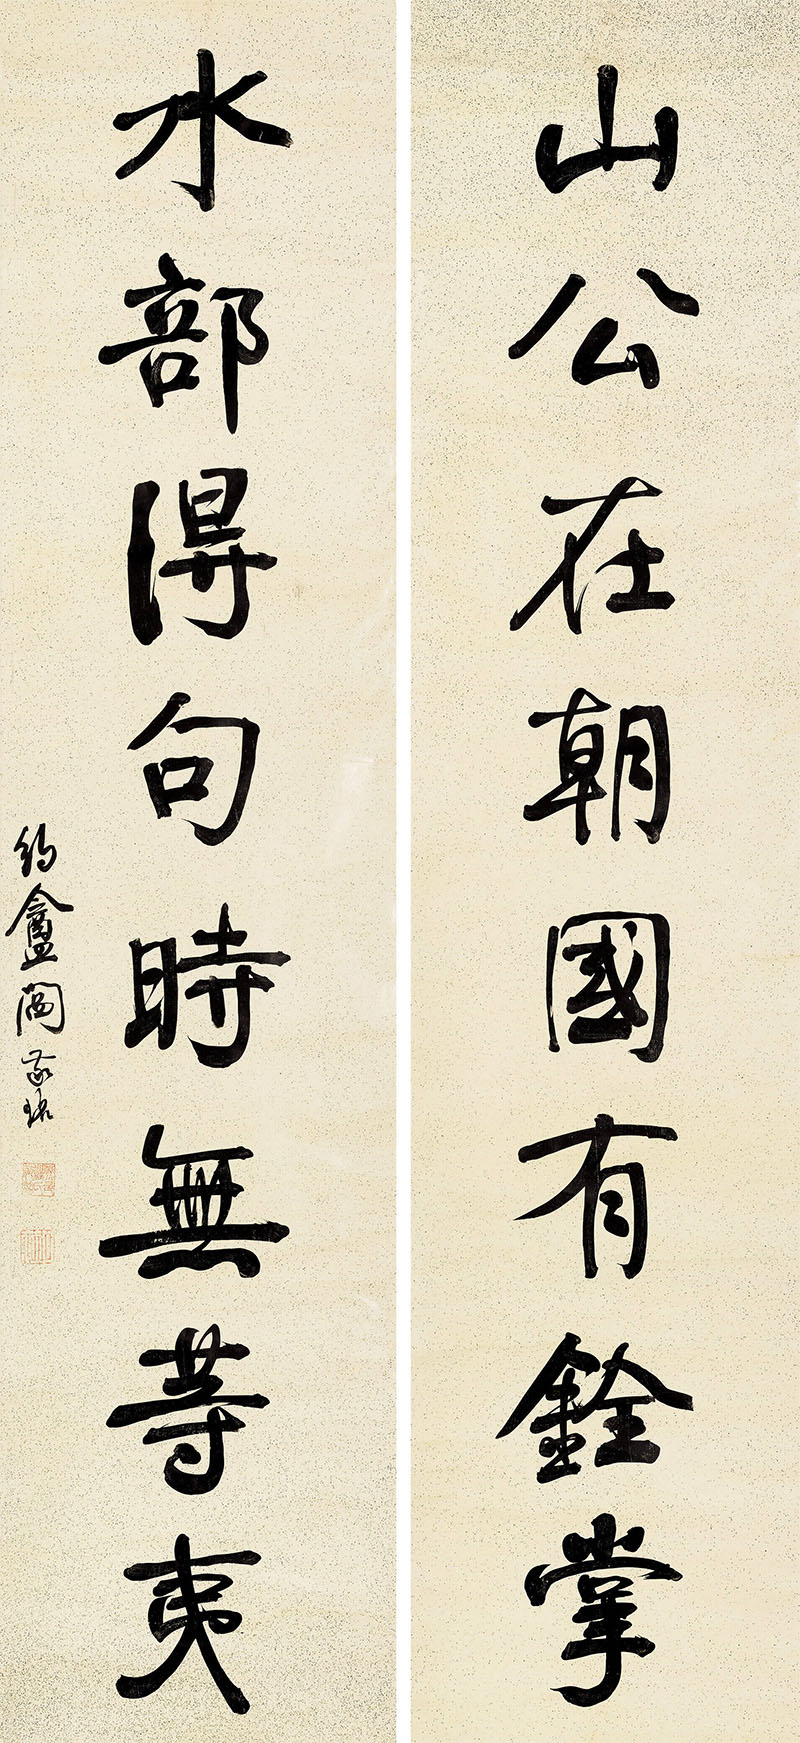 山公在朝國有銓掌
水部得句時無等夷
約盦閻敬銘